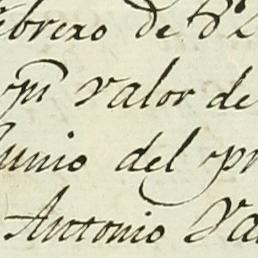 febrero de 82
valor de
Junio del pr
Antonio Va